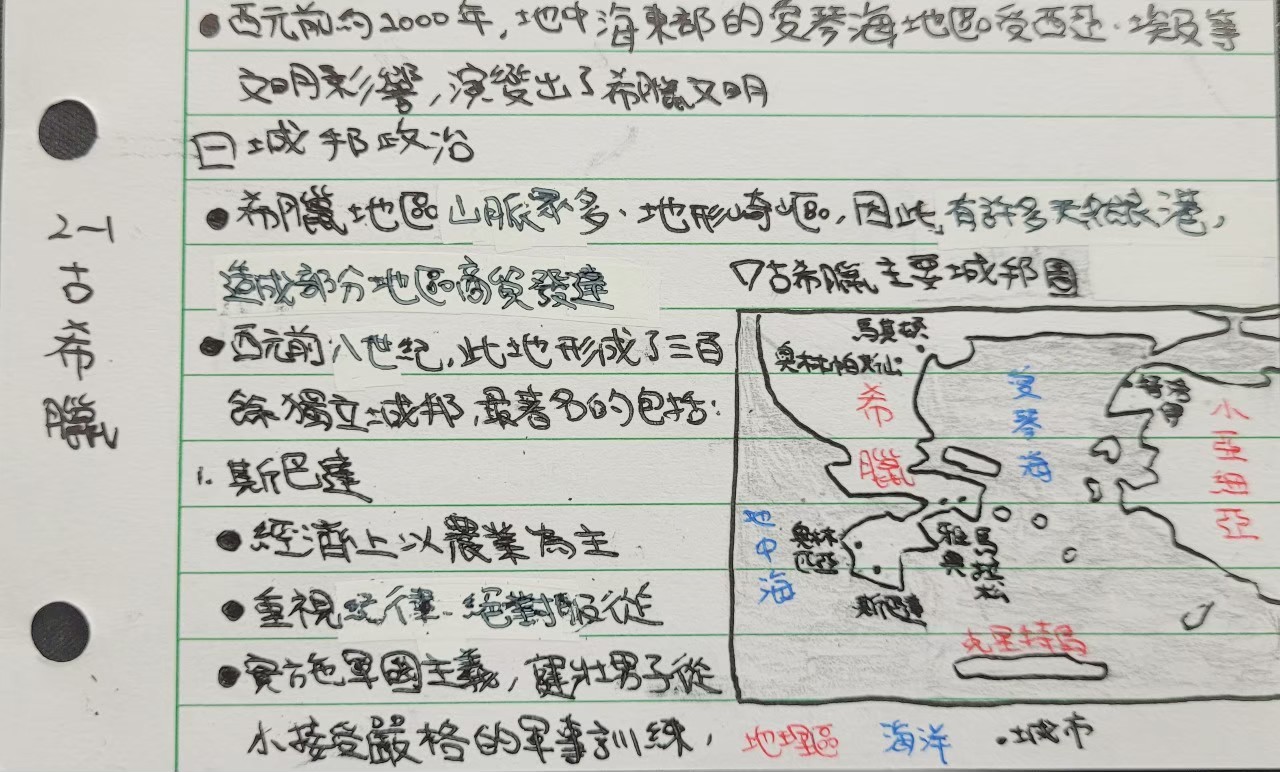 2-1 古希臘
●西元前約2000年，地中海東部的愛琴海地區受西亞、埃及等
文明影響，演變出了希臘文明
㊀城邦政治
●希臘地區山脈眾多、地形崎嶇，因此，有許多天然良港，
造成部分地區商貿發達
▽古希臘主要城邦圖
●西元前八世紀，此地形成了三百
餘獨立城邦，最著名的包括：
1. 斯巴達
●經濟上以農業為主
●重視紀律、絕對服從
●實施軍國主義，健壯男子從
小接受嚴格的軍事訓練，
馬其頓
奧林帕斯山
希臘
愛琴海
特洛伊
小亞細亞
地中海
奧林匹亞
雅典
馬拉松
斯巴達
克里特島
地理區 海洋 •城市